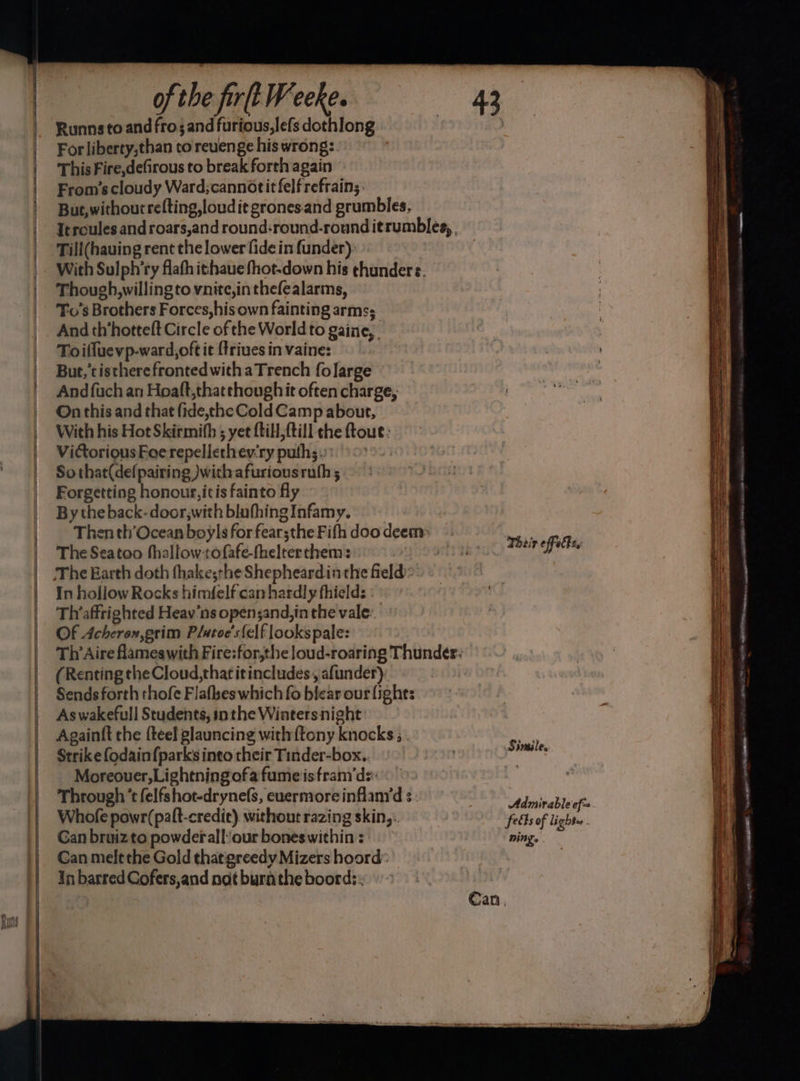 of the first Weeke. 43
Runns to and fro; and furious, less doth long
For liberty, than to reuenge his wrong:
This Fire, desirous to break forth again
From's cloudy Ward; cannot it self refrain;
But, without resting, loud it grones and grumbles,
It roules and roars, and round-round-round it rumbles,
Till (hauing rent the lower side in sunder)
With Sulph'ry flash it haue shot-down his thunder:
Though, willing to vnite, in these alarms,
To's Brothers Forces, his own fainting arms;
And th'hottest Circle of the World to gaine,
To issue vp-ward, oft it striues in vaine:
But, 'tis there fronted with a Trench so large
And such an Hoast, that though it often charge,
On this and that side, the Cold Camp about,
With his Hot Skirmish; yet still, still the stout
Victorious Foe repelleth ev'ry push;
So that (despairing) with a furious rush;
Forgetting honour, it is fain to fly
By the back-door, with blushing Infamy.
Then th'Ocean boyls for fear; the Fish doo deem
Their effects,
The Sea too shallow to safe-shelter them:
The Earth doth shake; the Shepheard in the field
In hollow Rocks himself can hardly shield:
Th'affrighted Heav'ns open; and, in the vale
Of Acheron, grim Plutoe's self looks pale:
Th'Aire flames with Fire: for, the loud-roaring Thunder
(Renting the Cloud, that it includes, asunder)
Sends forth those Flashes which so blear our sight:
As wakefull Students, in the Winters night
Against the steel glauncing with stony knocks,
Simile.
Strike sodain sparks into their Tinder-box.
Moreouer, Lightning of a fume is fram'd:
Through 't self's hot-dryness, euermore inflam'd:
Admirable ef-
Whose powr (past-credit) without razing skin,
fects of light-
Can bruiz to powder all our bones within:
ning.
Can melt the Gold that greedy Mizers hoord
In barred Cofers, and not burn the boord:
Can